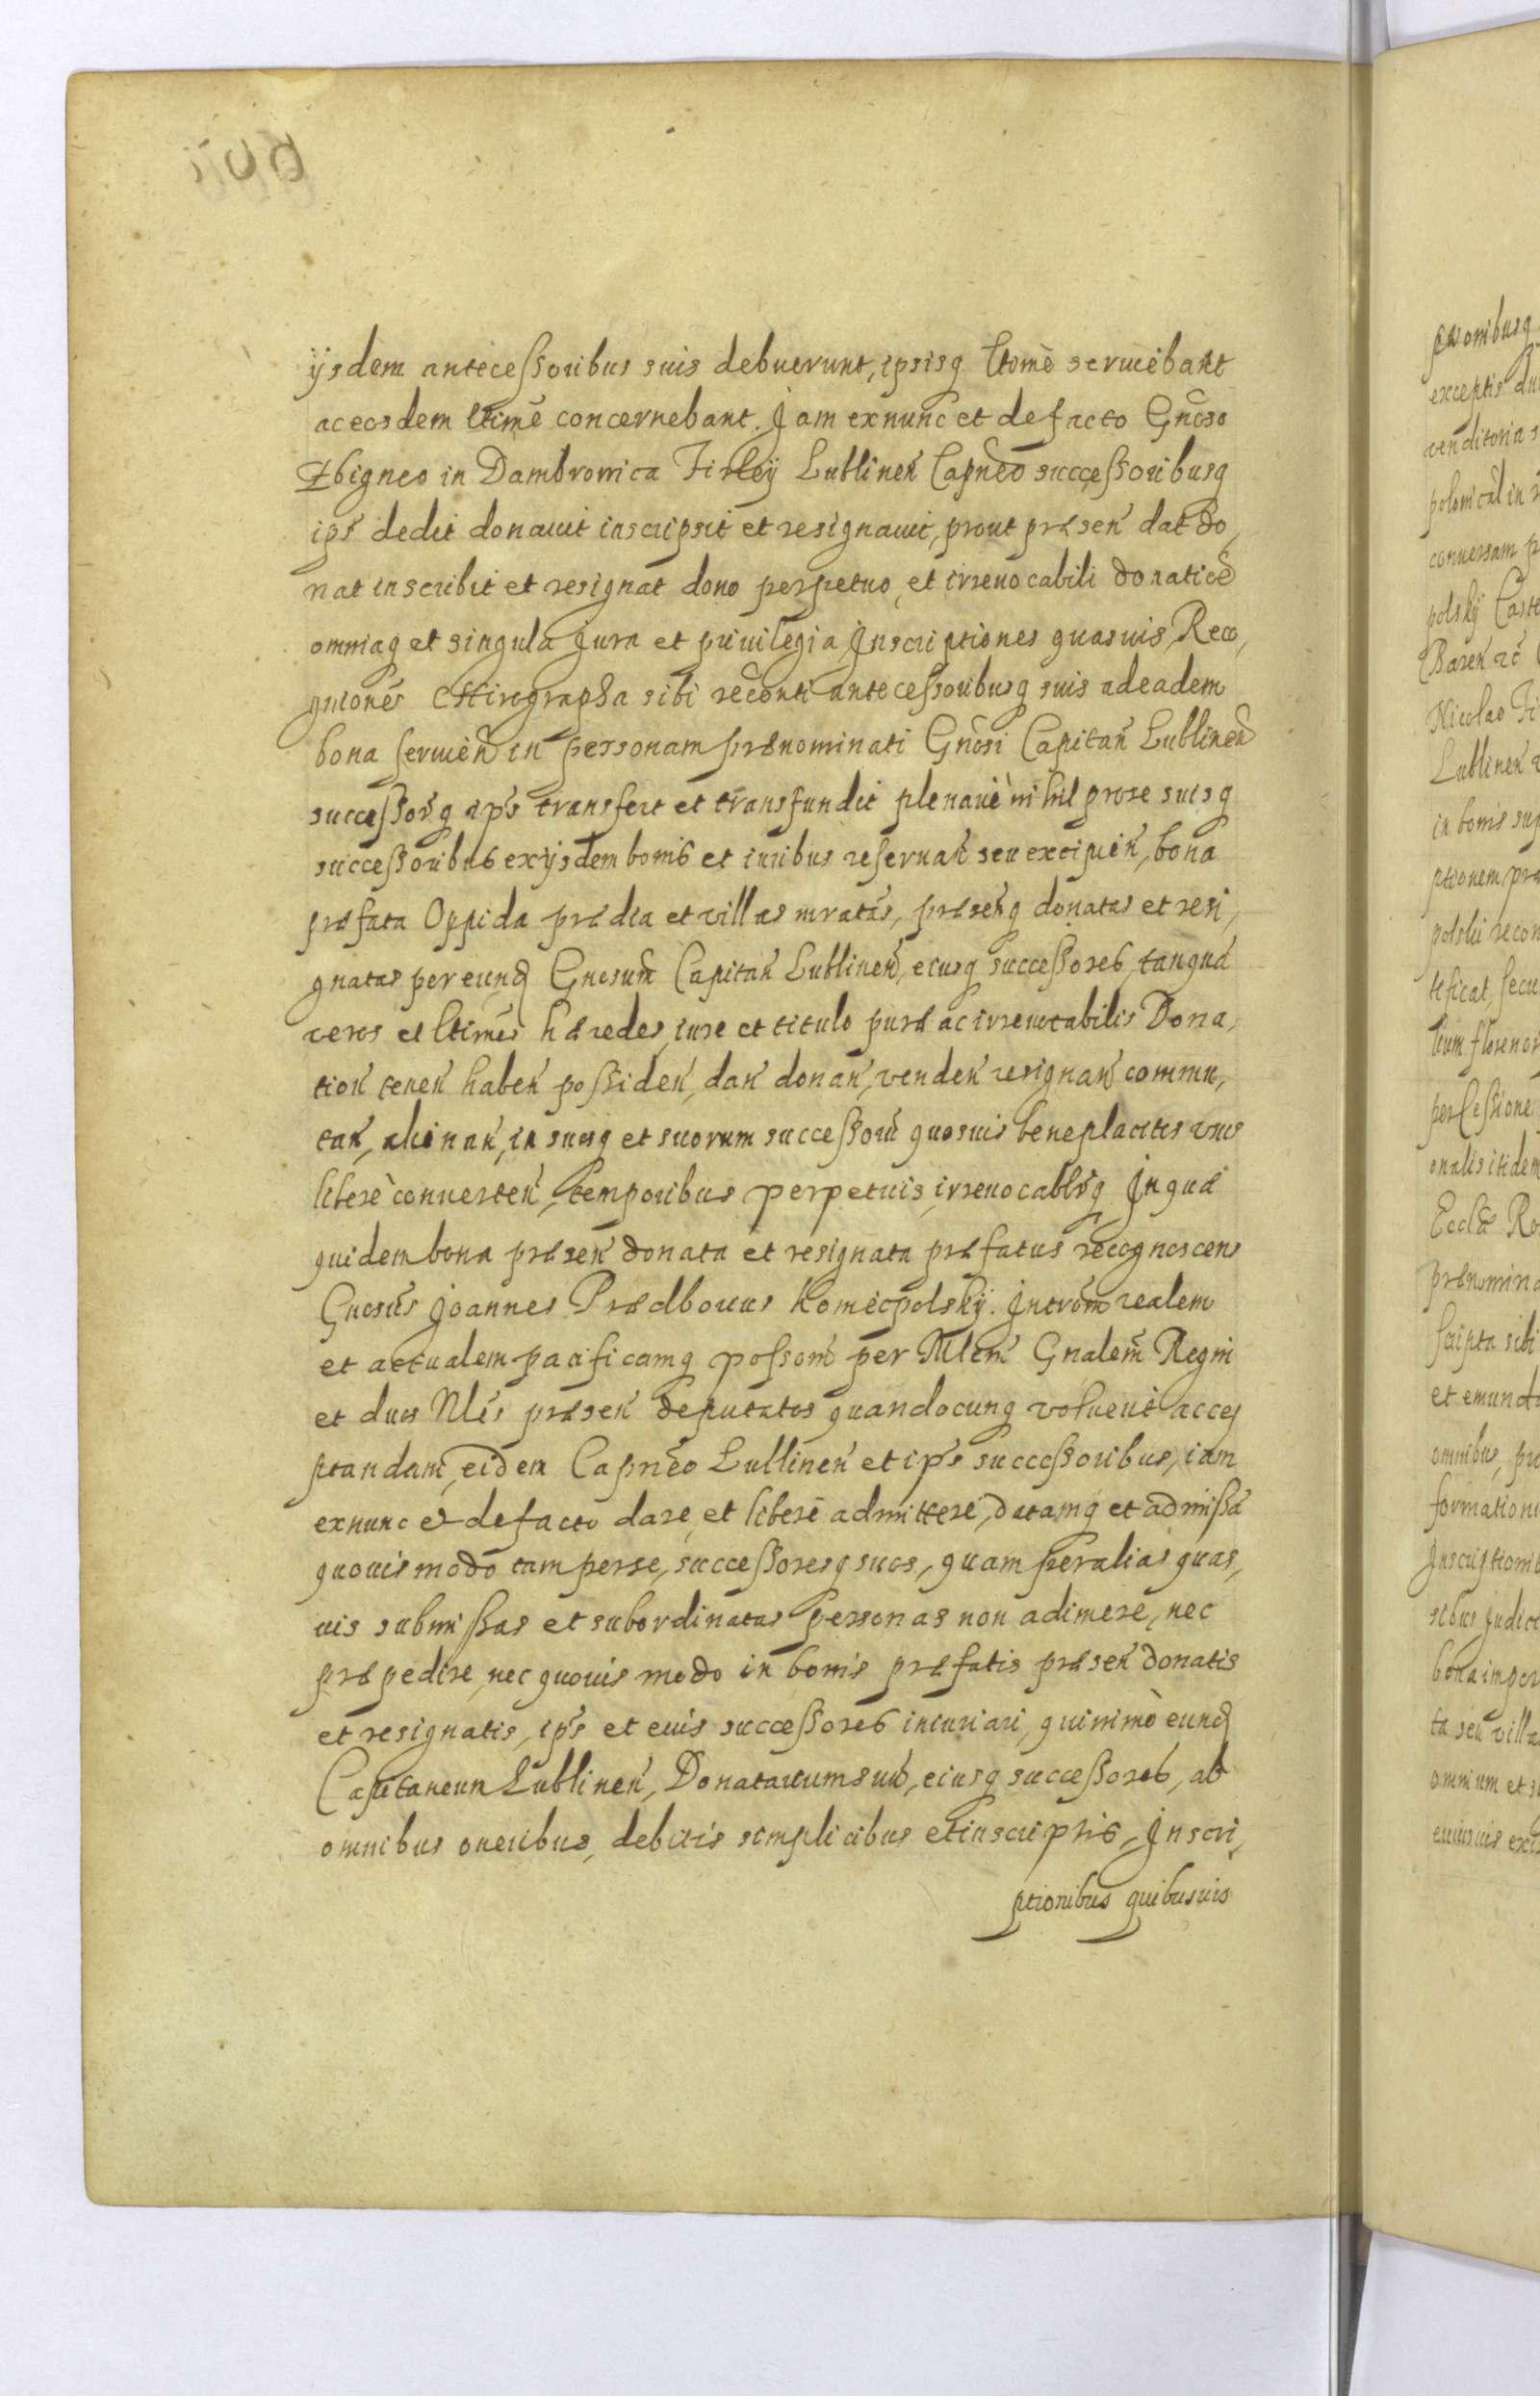 ijsdem antecessoribus suis debuerunt, ipsisq ltome seruiebant
ac eosdem ltime concernebant. Jam exnunc et defacto Gnoso
Zbigneo in Dambrowica Firleij Lublinen Capneo successoribusq
ips dedit donauit inscripsit et resignauit, prout præsen dat do,
nat inscribit et resignat dono perpetuo, et irreuocabili donatioe
omniaq et singula Jura et priuilegia Jnscriptiones quasuis, Reco,
gniones Chirographa sibi reconti antecessoribusq suis ad eadem
bona seruien in personam prænominati Gnosi Capitan Lublinen
successorq ips transfert et transfundit plenarie nihil pro se suisq
successoribus ex ijsdem bonis et iuribus reseruan seu excipien, bona
præfata Oppida prædia et villas mratas, præsenq donatas et resi,
gnatas per eund Gnosum Capitan Lublinen, eiusq successores, tanqua
veros et ltimes hæredes, iure et titulo puræ ac irreuocabilis Dona,
tion tenen haben possiden, dan donan, venden resignan commu,
tan, alienan, in suosq et suorum successoru quosuis beneplacitis usus
libere conuerten, temporibus perpetuis, irreuocablrq Jn qua
quidem bona præsen donata et resignata præfatus recognoscens
Gnosus Joannes Prædbouus Koniecpolskij. Jntrom realem
et actualem pacificamq possom per Mlem Gnalem Regni
et duos Nles præsen deputatos quandocunq voluerit acce,
ptandam, eidem Capneo Lullinen et ips successoribus, iam
exnunc et defacto dare, et libere admittere, datamq et admissa
quouis modo tam per se, successoresq suos, quam per alias quas,
uis submissas et subordinatas personas non adimere, nec
præpedire, nec quouis modo in bonis præfatis præsen donatis
et resignatis, ips et euis successores iniuriari, quinimo eund
Capitaneum Lublinen, Donatarium suu, eiusq successores, ab
omnibus oneribus, debitis simplicibus et inscriptis, Jnscri,
ptionibus quibusuis